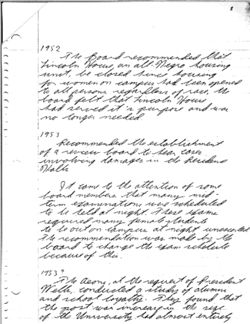 1952
The Board recommended that
Lincoln House, an all Negro housing
unit, be closed since housing
for women on campus had been opened
to all persons regardless of race. The
board felt that Lincoln House
had served its purpose and was
no longer needed.
1953
Recommended the establishment
of a review board to hear cases
involving damages in the Residence
Halls.
It came to the attention of some
board members that many mid-
term examinations was scheduled
to be held at night. These exams
required many female students
to be out on campus at night unescorted.
The recommendation was made by the
board to change the exam schedule
because of this.
The Deans, at the request of President
Wells, conducted a study of alumni
and school loyalty. They found that
the most was
of the University had almost entirely